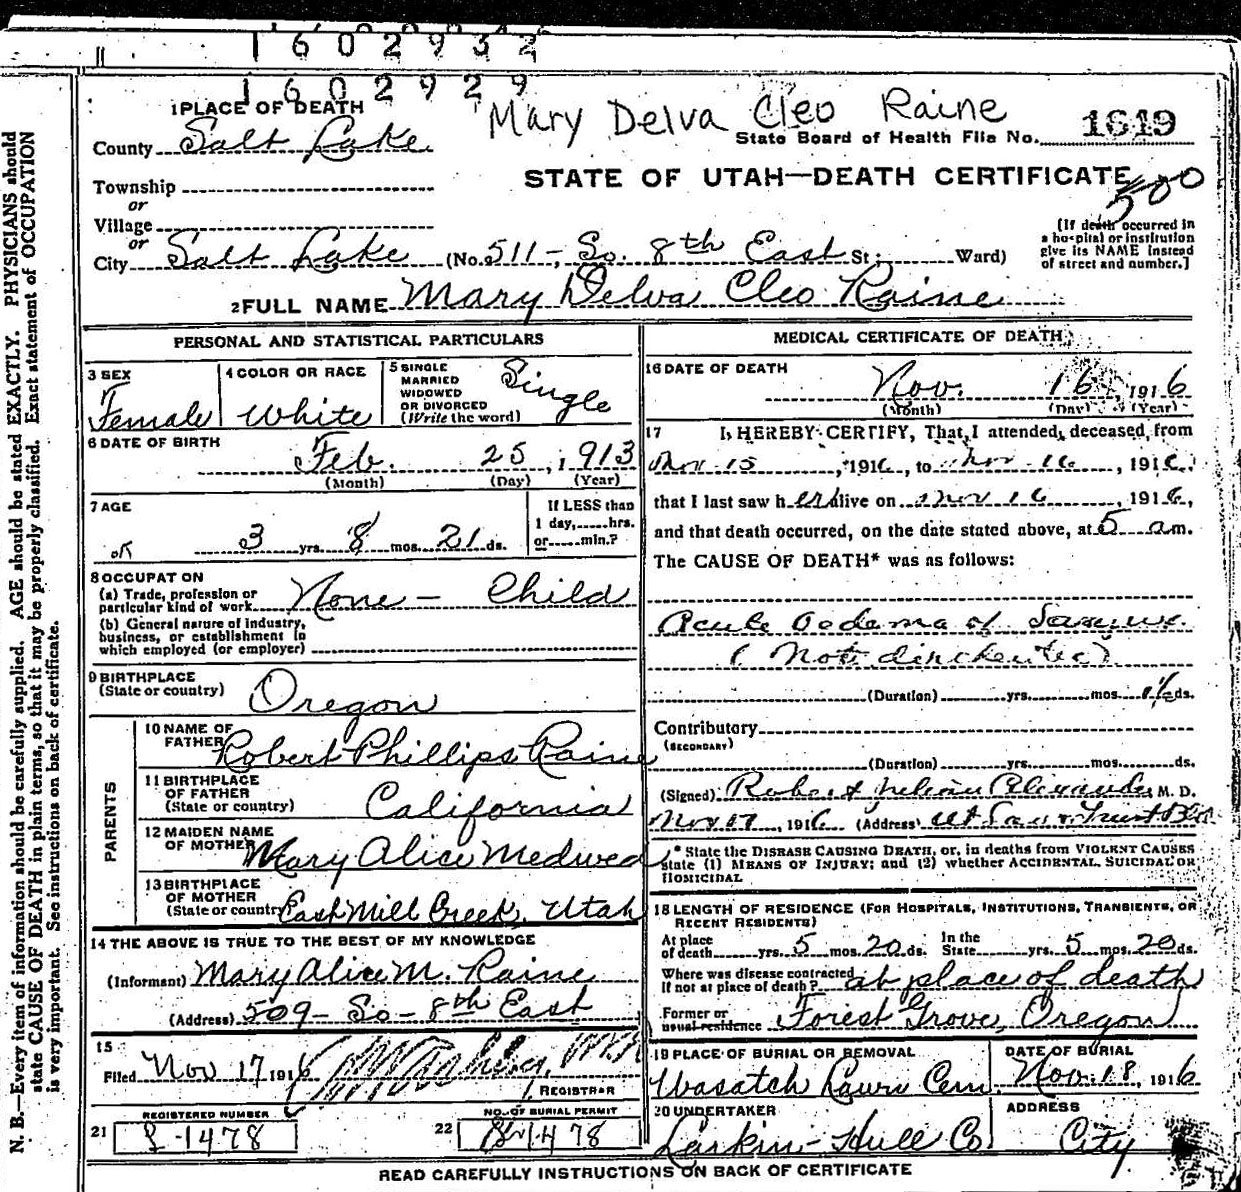 1602932
1602929
1 PLACE OF DEATH
Mary Delva Cleo Raine
State Board of Health File No. 1649
County Salt Lake
STATE OF UTAH—DEATH CERTIFICATE
500
Township
or
Village
or
City Salt Lake (No. 511 - So. 8th East St; Ward)
[If death occurred in a hospital or institution give its NAME instead of street and number.]
2 FULL NAME Mary Delva Cleo Raine
PERSONAL AND STATISTICAL PARTICULARS
3 SEX Female
4 COLOR OR RACE White
5 SINGLE MARRIED WIDOWED OR DIVORCED (Write the word) Single
6 DATE OF BIRTH Feb. 25, 1913
(Month) (Day) (Year)
7 AGE
If LESS than 1 day,.....hrs. or.....min.?
OK 3 yrs. 8 mos. 21 ds.
8 OCCUPATION
(a) Trade, profession or particular kind of work None - Child
(b) General nature of industry, business, or establishment in which employed (or employer)
9 BIRTHPLACE (State or country) Oregon
PARENTS
10 NAME OF FATHER Robert Phillips Raine
11 BIRTHPLACE OF FATHER (State or country) California
12 MAIDEN NAME OF MOTHER Mary Alice Medwed
13 BIRTHPLACE OF MOTHER (State or country) East Mill Creek, Utah
14 THE ABOVE IS TRUE TO THE BEST OF MY KNOWLEDGE
(Informant) Mary Alice M. Raine
(Address) 509 - So - 8th East
15
Filed Nov 17 1916
REGISTRAR
REGISTERED NUMBER
21 1478
NO. OF BURIAL PERMIT
22 1478
MEDICAL CERTIFICATE OF DEATH
16 DATE OF DEATH
Nov. 16, 1916
(Month) (Day) (Year)
17 I HEREBY CERTIFY, That I attended deceased from
Nov 15, 1916, to Nov 16, 1916.
that I last saw her alive on Nov 16, 1916,
and that death occurred, on the date stated above, at 5 a m.
The CAUSE OF DEATH* was as follows:
Acute Oedema of
(Not
(Duration) yrs. mos. 1½ ds.
Contributory
(SECONDARY)
(Duration) yrs. mos. ds.
(Signed) Robert Julian Alexander M. D.
Nov 17, 1916 (Address)
* State the DISEASE CAUSING DEATH, or, in deaths from VIOLENT CAUSES state (1) MEANS OF INJURY; and (2) whether ACCIDENTAL, SUICIDAL OR HOMICIDAL
18 LENGTH OF RESIDENCE (FOR HOSPITALS, INSTITUTIONS, TRANSIENTS, OR RECENT RESIDENTS)
At place of death yrs. 5 mos. 20 ds. In the State yrs. 5 mos. 20 ds.
Where was disease contracted If not at place of death? at place of death
Former or usual residence Forest Grove, Oregon
19 PLACE OF BURIAL OR REMOVAL
Wasatch Lawn Cem.
DATE OF BURIAL
Nov. 18, 1916
20 UNDERTAKER
Larkin-Hull Co
ADDRESS
City
READ CAREFULLY INSTRUCTIONS ON BACK OF CERTIFICATE
N. B.—Every item of information should be carefully supplied. AGE should be stated EXACTLY. PHYSICIANS should
state CAUSE OF DEATH in plain terms, so that it may be properly classified. Exact statement of OCCUPATION
is very important. See instructions on back of certificate.